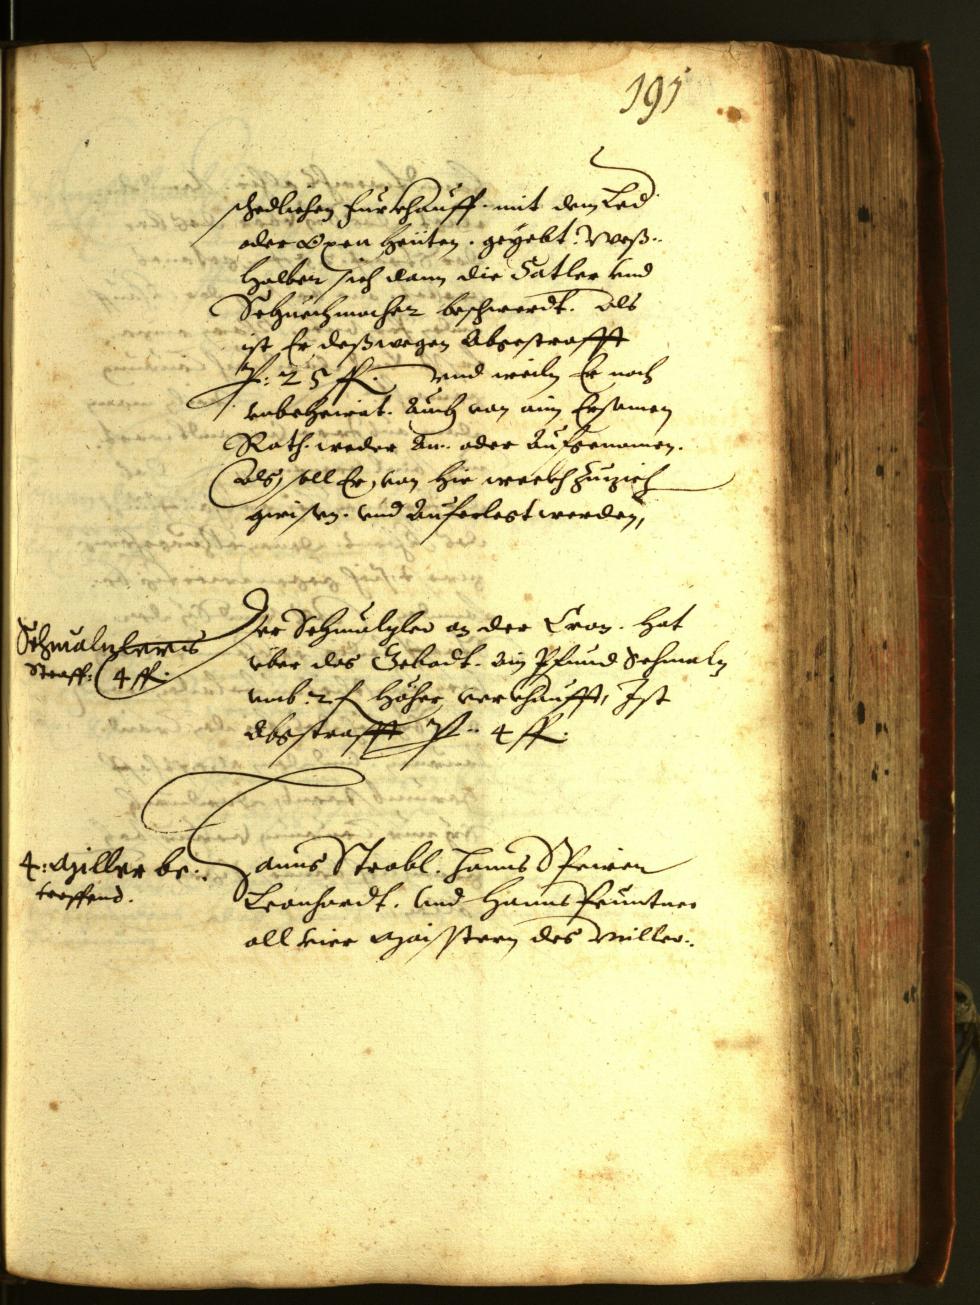 191
schedlichen Furkhauff. mit dem Led
oder Oxen Heüten. geyebt. Weß„
halben sich dann die Satler vnd
Schuechmacher beschwerdt. Als
ist Er deßwegen Abgestrafft
P: 25 fl. vnd weiln Er noch
vnbeheirat. Auch von aim Ersamen
Rath. weder An- oder Aufgenomen.
Als, soll Er, von hie weckh zuzieh
gwisen. vnd Auferlegt werden,
Schmalzlers
Straff: 4 fl.
Der Schmalzler an der Eron. hat
über das Gebodt. ain Pfund Schmalz
vmb 2 f höher verkhaufft, Ist
Abgestrafft P 4 fl.
4: Miller be„
treffend.
Hanns Strobl. Hanns
Leonhardt. vnd Hanns Peuntner
all vier Maistern des Miller„